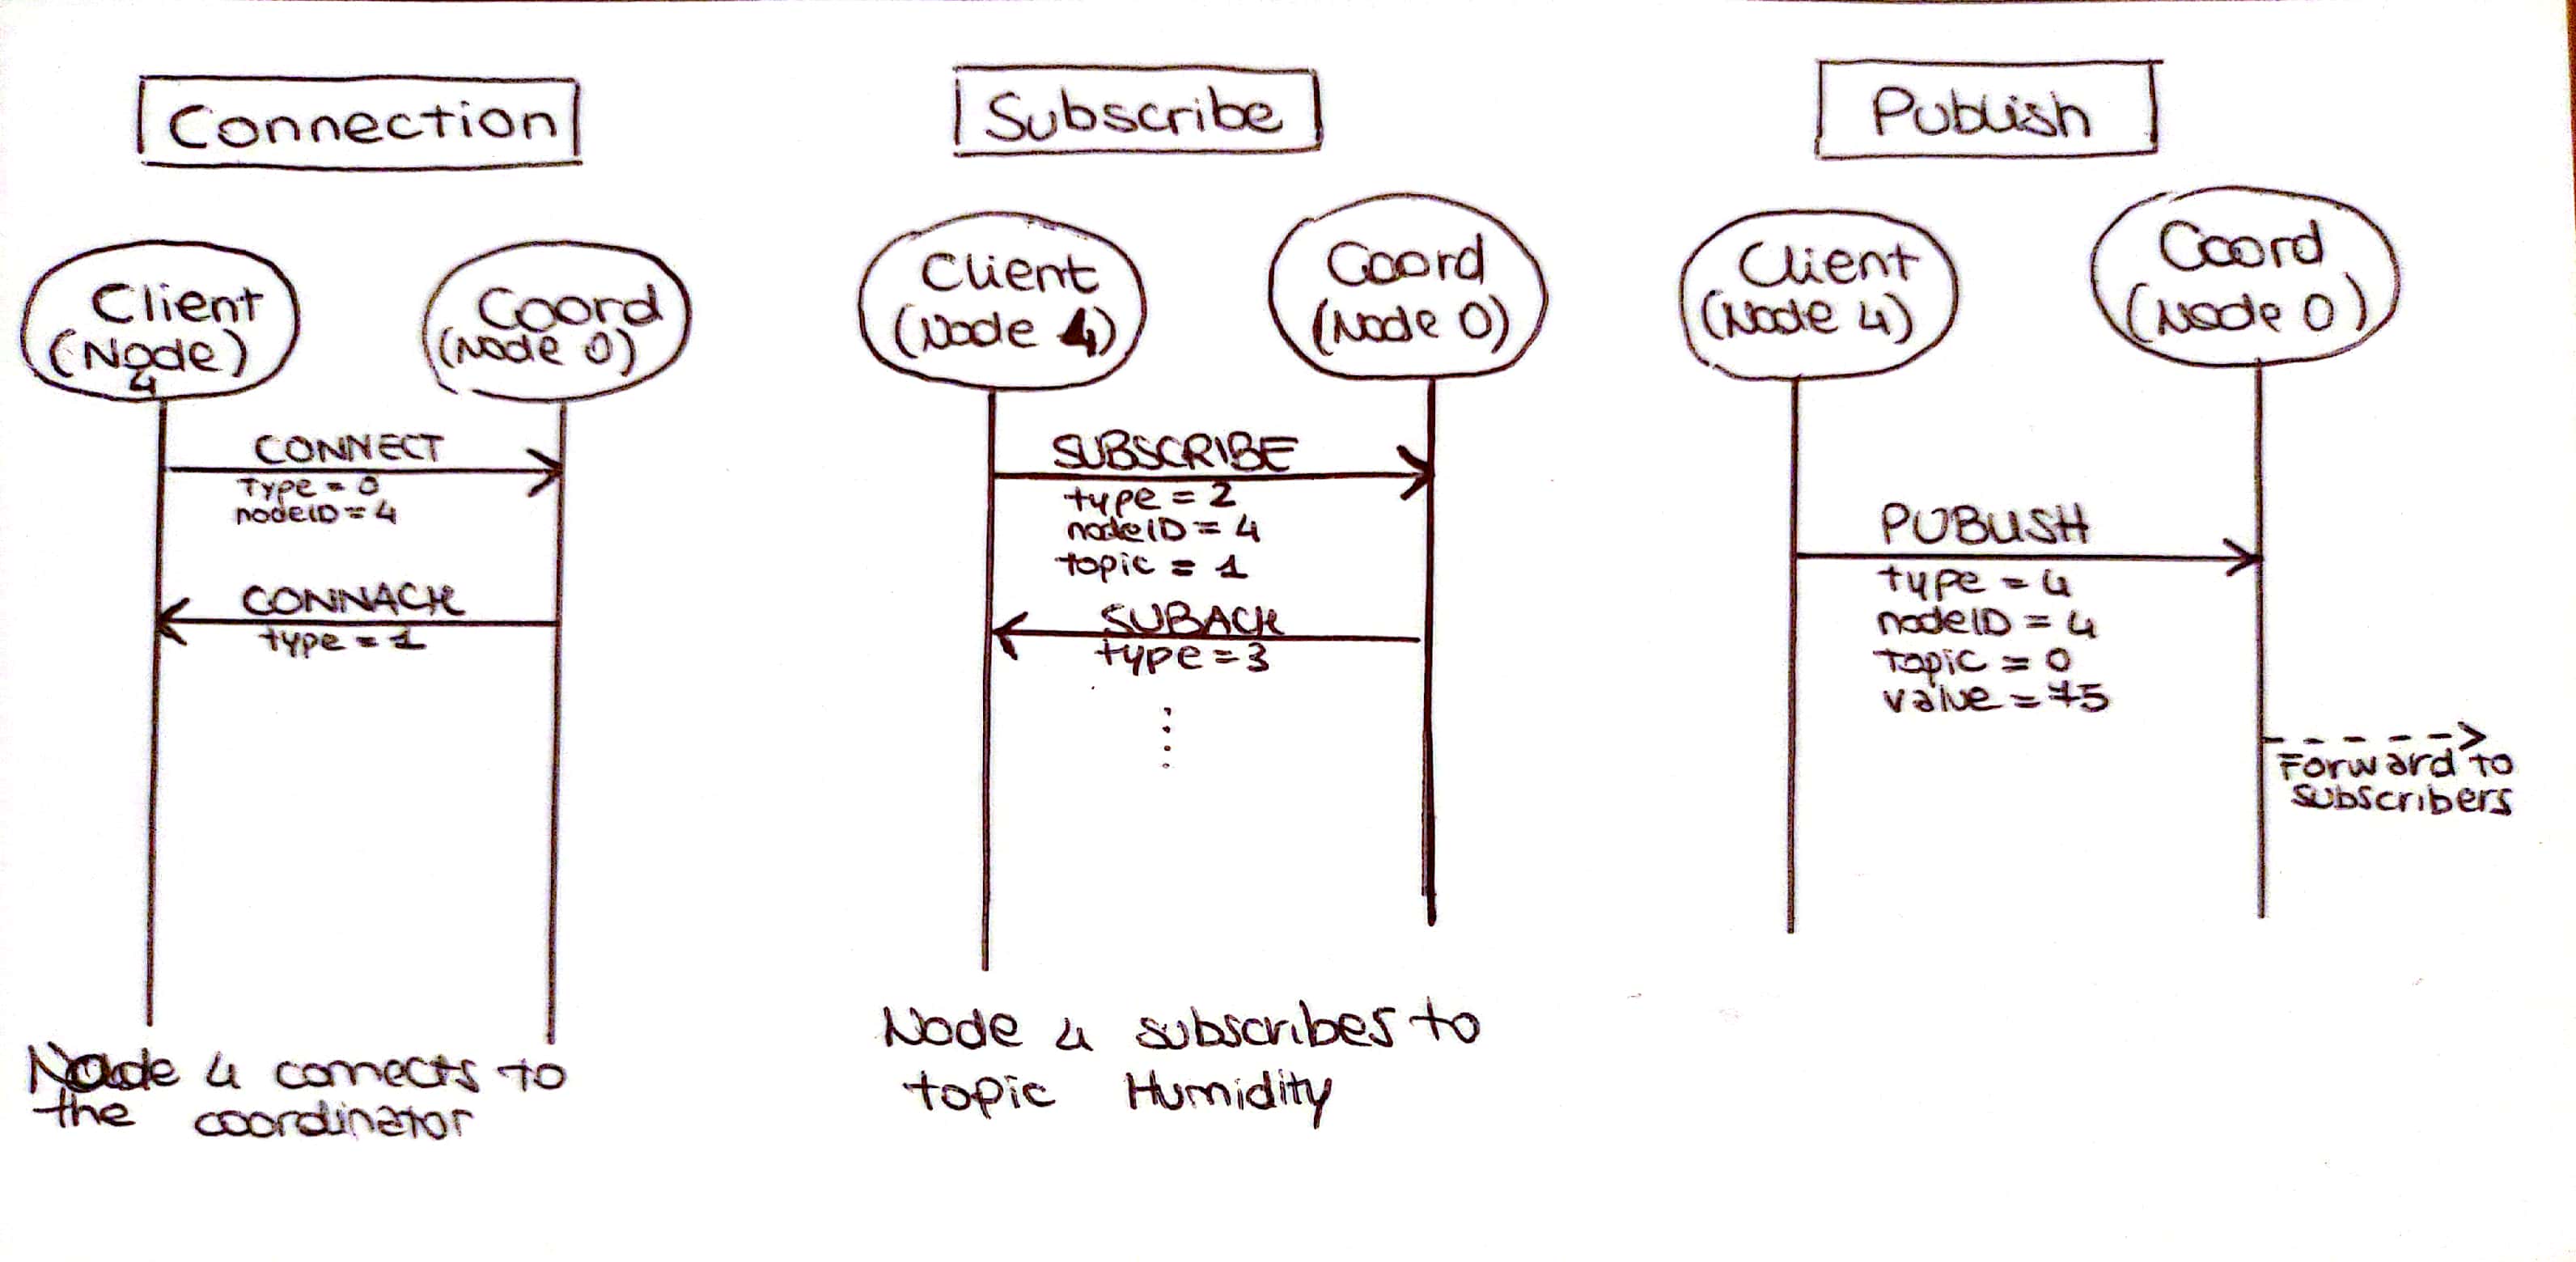 Connection
Client
(Node)
4
Coord
(Node 0)
CONNECT
Type = 0
nodeID = 4
CONNACK
type = 1
Node 4 connects to
the coordinator
Subscribe
Client
(Node 4)
Coord
(Node 0)
SUBSCRIBE
type = 2
nodeID = 4
topic = 1
SUBACK
type = 3
Node 4 subscribes to
topic Humidity
Publish
Client
(Node 4)
Coord
(Node 0)
PUBLISH
type = 4
nodeID = 4
topic = 0
value = 75
Forward to
subscribers